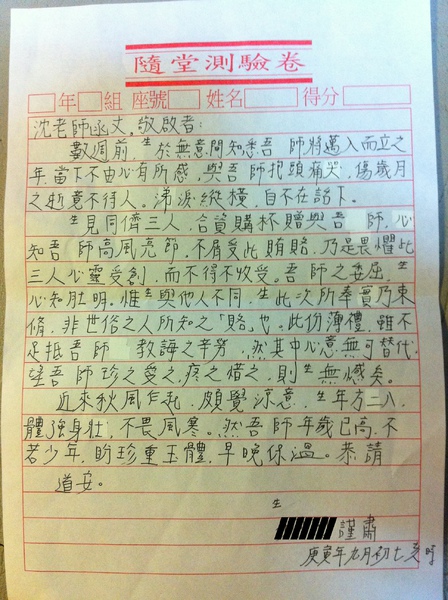 隨堂測驗卷
年 組 座號 姓名 得分
沈老師函丈,敬啟者:
數週前,生於無意間知悉吾 師將邁入而立之
年,當下不由心有所感,與吾師抱頭痛哭,傷歲月
之逝竟不待人。涕淚縱橫,自不在話下。
生見同儕三人,合資購杯贈與吾 師,心
知吾 師高風亮節,不屑受此賄賂,乃是畏懼此
三人心靈受創,而不得不收受。吾師之委屈,生
心知肚明。惟生與他人不同,生此次所奉實乃束
脩,非世俗之人所知之「賂」也。此份薄禮,雖不
足抵吾師 教誨之辛勞,然其中心意無可替代,
望吾師珍之愛之,疼之惜之,則生無憾矣。
近來秋風乍起,頗覺涼意,生年方二八,
體強身壯,不畏風寒。然吾師年歲已高,不
若少年,盼珍重玉體,早晚保溫。恭請
道安。
生
謹肅
庚寅年九月初七亥時